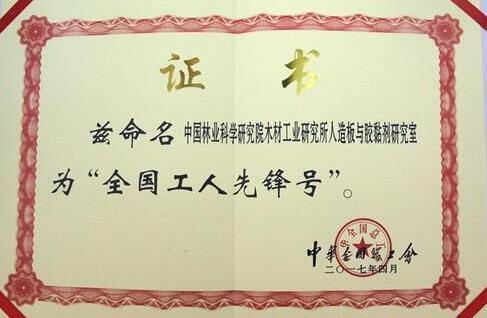 证书
兹命名中国林业科学研究院木材工业研究所人造板与胶黏剂研究室
为“全国工人先锋号”。
中华全国总工会
中华全国总工会
二〇一七年四月